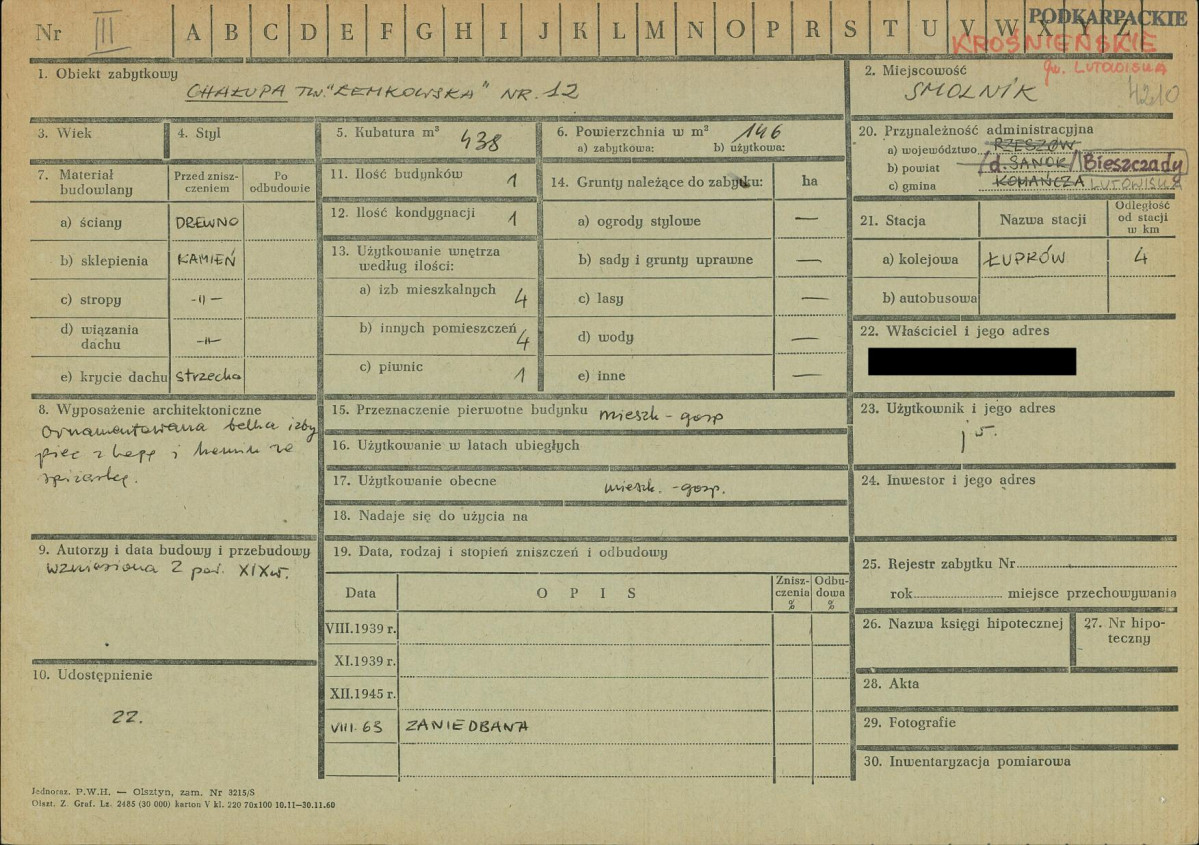 Nr III A B C D E F G H I J K L M N O P R S T U V W X Y Z
PODKARPACKIE
KROŚNIEŃSKIE
gm. LUTOWISKA
1. Obiekt zabytkowy
CHAŁUPA TZW. "ŁEMKOWSKA" NR. 12
2. Miejscowość
SMOLNIK 4210
3. Wiek
4. Styl
5. Kubatura m³ 438
6. Powierzchnia w m² 146
a) zabytkowa: b) użytkowa:
7. Materiał budowlany
Przed zniszczeniem
Po odbudowie
a) ściany DREWNO
b) sklepienia KAMIEŃ
c) stropy -〃-
d) wiązania dachu -〃-
e) krycie dachu strzecha
8. Wyposażenie architektoniczne
Ornamentowana belka izby
piec z kapą i
spiżarkę.
9. Autorzy i data budowy i przebudowy
wzniesiona 2 poł. XIX w.
10. Udostępnienie
22.
11. Ilość budynków 1
12. Ilość kondygnacji 1
13. Użytkowanie wnętrza
według ilości:
a) izb mieszkalnych 4
b) innych pomieszczeń 4
c) piwnic 1
14. Grunty należące do zabytku: ha
a) ogrody stylowe —
b) sady i grunty uprawne —
c) lasy —
d) wody —
e) inne —
15. Przeznaczenie pierwotne budynku mieszk - gosp
16. Użytkowanie w latach ubiegłych
17. Użytkowanie obecne mieszk. - gosp.
18. Nadaje się do użycia na
19. Data, rodzaj i stopień zniszczeń i odbudowy
Data OPIS Zniszczenia % Odbudowa %
VIII.1939 r.
XI.1939 r.
XII.1945 r.
VIII.63 ZANIEDBANA
20. Przynależność administracyjna
a) województwo RZESZÓW
b) powiat /d. SANOK/ Bieszczady
c) gmina KOMAŃCZA LUTOWISKA
21. Stacja Nazwa stacji Odległość od stacji w km
a) kolejowa ŁUPKÓW 4
b) autobusowa
22. Właściciel i jego adres
23. Użytkownik i jego adres
24. Inwestor i jego adres
25. Rejestr zabytku Nr
rok miejsce przechowywania
26. Nazwa księgi hipotecznej
27. Nr hipoteczny
28. Akta
29. Fotografie
30. Inwentaryzacja pomiarowa
Jednoraz. P.W.H. — Olsztyn, zam. Nr 3215/S
Olszt. Z. Graf. Lz. 2485 (30 000) karton V kl. 220 70x100 10.11—30.11.60